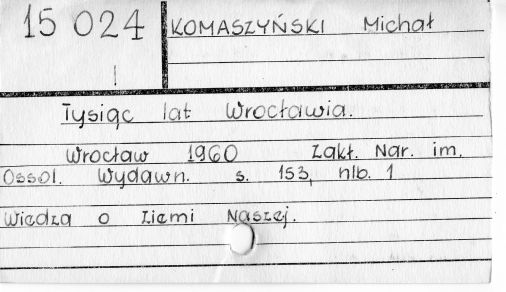 15 024
KOMASZYŃSKI Michał
Tysiąc lat Wrocławia.
Wrocław 1960 Zakł. Nar. im.
Ossol. Wydawn. s. 153, nlb. 1
Wiedza o Ziemi Naszej.